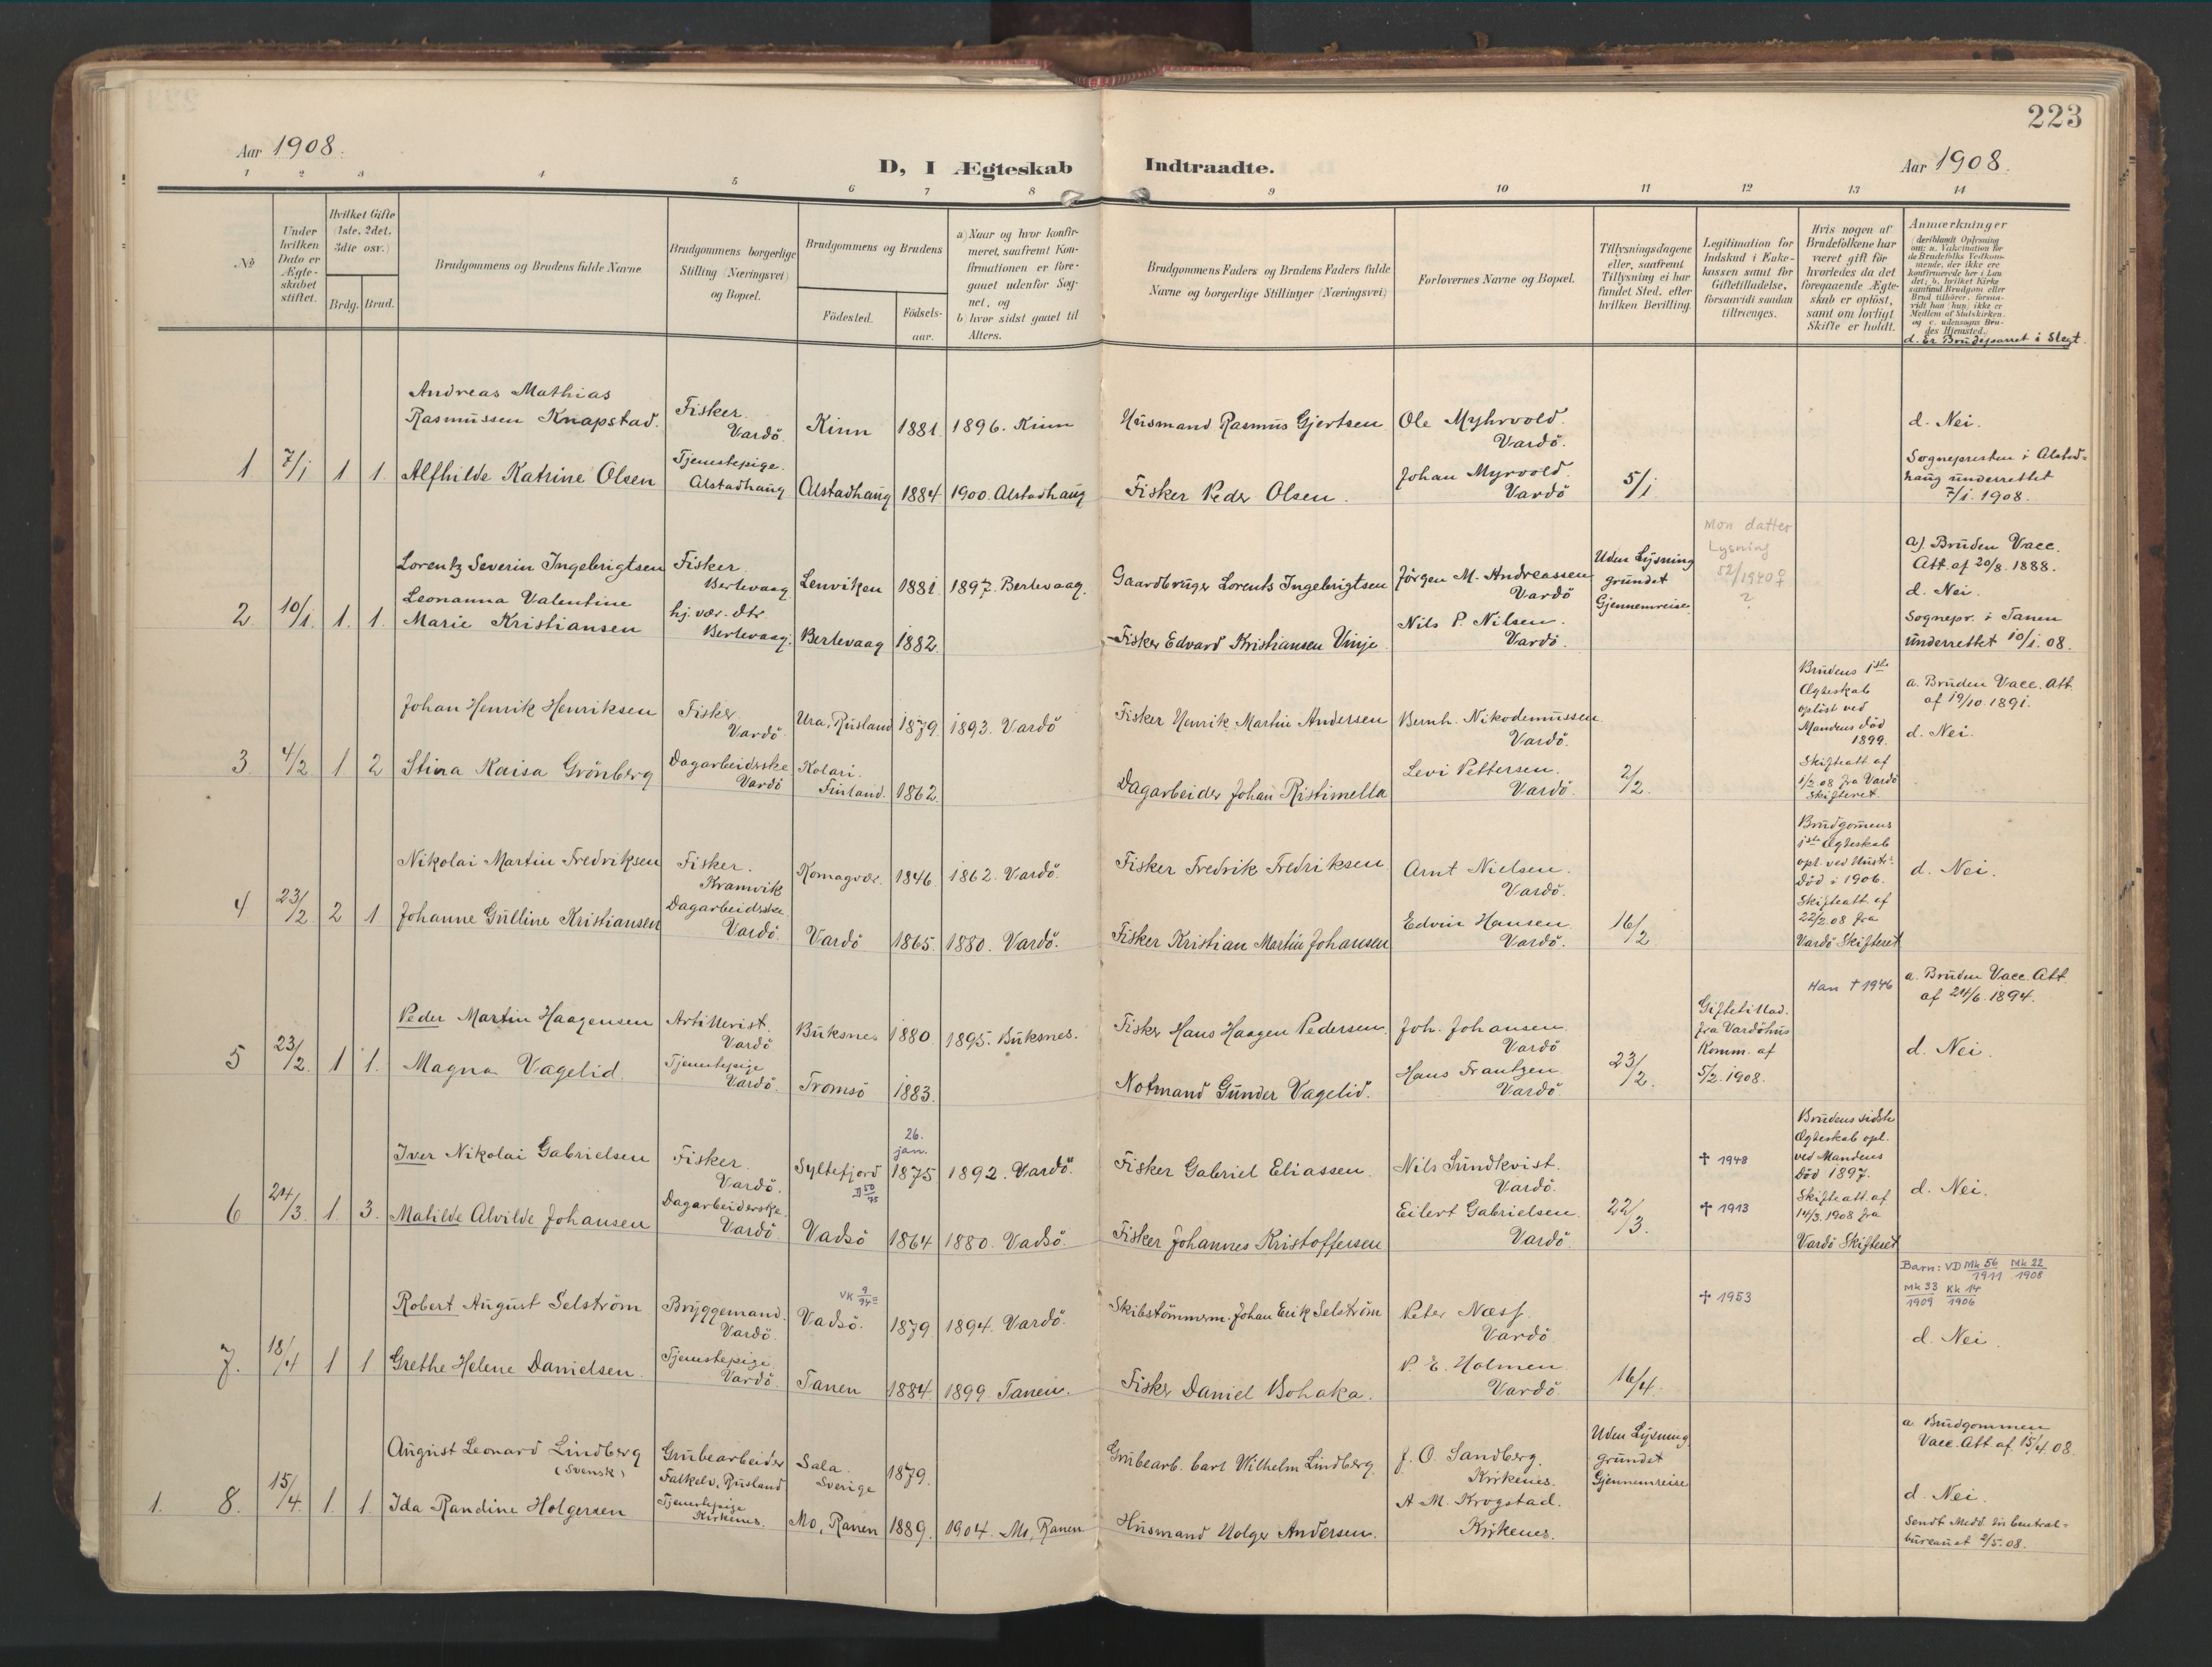 223
Aar 1908.
D, I Ægteskab Indtraadte.
Aar 1908.
1 2 3 4 5 6 7 8 9 10 11 12 13 14
No
Under hvilken Dato er Ægteskabet stiftet.
Hvilket Gifte (1ste, 2det, 3die osv.)
Brdg. Brud.
Brudgommens og Brudens fulde Navne
Brudgommens borgerlige Stilling (Næringsvei) og Bopæl.
Brudgommens og Brudens
Födested.
Födselsaar.
a) Naar og hvor konfirmeret, saafremt Konfirmationen er foregaaet udenfor Sognet, og
b hvor sidst gaaet til Alters.
Brudgommens Faders og Brudens Faders fulde Navne og borgerlige Stillinger (Næringsvei)
Forlovernes Navne og Bopæl.
Tillysningsdagene eller, saafremt Tillysning ei har fundet Sted, efter hvilken Bevilling.
Legitimation for Indskud i Enkekassen samt for Giftetilladelse, forsaavidt saadan tiltrænges.
Hvis nogen af Brudefolkene har været gift før hvorledes da det foregaaende Ægteskab er oplöst, samt om lovligt Skifte er holdt.
Anmærkninger
(deriblandt Oplysning om: a. Vakcination for de Brudefolks Vedkommende, der ikke ere konfirmerede her i Landet; b. hvilket Kirkesamfund Brudgom eller Brud tilhører, forsaavidt han (hun) ikke er Medlem af Statskirken. og c. udensogns Brudes Hjemsted.)
d. Er Brudeparret i Slegt.
1 7/1 1 1.
Andreas Mathias
Rasmussen Knapstad.
Fisker. Vardö.
Kinn 1881. 1896. Kinn
Husmand Rasmus Gjertsen
Ole Myhrvold. Vardö.
d. Nei.
Alfhilde Katrine Olsen
Tjenestepige. Alstadhaug
Alstadhaug 1884 1900. Alstadhaug
Fisker Peder Olsen.
Johan Myrvold. Vardö
5/1
Sognepresten i Alstadhaug underrettet 7/1. 1908.
2. 10/1. 1. 1.
Lorentz Severin Ingebrigtsen
Fisker. Berlevaag
Lenviken 1881. 1897. Berlevaag.
Gaardbruger Lorents Ingebrigtsen
Jörgen M. Andreassen Vardö
Uden Lysning grundet Gjennemreise.
Mon datter
Lysning
52/1940 ♀
?
a). Bruden Vacc. Att. af 20/8. 1888.
d. Nei.
Leonanna Valentine
Marie Kristiansen
hj. vær. dtr. Berlevaag.
Berlevaag 1882.
Fisker Edvard Kristiansen Vinje
Nils P. Nilsen. Vardö.
Sognepr. i Tanen underrettet 10/1. 08.
3. 4/2 1 2
Johan Henrik Henriksen
Fisker. Vardö.
Ura, Rusland 1879. 1893. Vardö
Fisker Henrik Martin Andersen
Bernh. Nikodemussen Vardö.
Brudens 1ste Ægteskab oplöst ved Mandens död 1899.
Skifteatt af 1/2.08 fra Vardö Skifteret.
a. Bruden Vacc. Att. af 19/10. 1891.
d. Nei.
Stina Kaisa Grönberg
Dagarbeiderske Vardö
Kolari. Finland. 1862.
Dagarbeider Johan Ristimella
Levi Pettersen. Vardö.
2/2.
4 23/2 2 1
Nikolai Martin Fredriksen
Fisker. Kramvik
Komagvær. 1846. 1862. Vardö.
Fisker Fredrik Fredriksen
Arnt Nielsen. Vardö.
Brudgomens 1ste Ægteskab opl. ved Hustr. Död i 1906.
Skifteatt. af 22/2.08 fra Vardö Skifteret
d. Nei.
Johanne Gulline Kristiansen
Dagarbeidske. Vardö.
Vardö 1865. 1880. Vardö.
Fisker Kristian Martin Johansen
Edvin Hansen Vardö.
16/2
5 23/2. 1 1.
Peder Martin Haagensen
Artillerist. Vardö
Buksnes 1880 1895. Buksnes.
Fisker Hans Haagen Pedersen.
Joh. Johansen Vardö
Giftetillad. fra Vardöhus Komm. af 5/2. 1908.
Han † 1946
a. Bruden Vacc. Att. af 24/6. 1894.
d. Nei.
Magna Vagelid.
Tjenestepige Vardö.
Tromsö 1883.
Notmand Gunder Vagelid.
Hans Frantzen. Vardö
23/2.
6 24/3. 1. 3.
Iver Nikolai Gabrielsen
Fisker. Vardö.
Syltefjord
D 50/75
26. jan. 1875 1892. Vardö.
Fisker Gabriel Eliassen.
Nils Sundkvist. Vardö.
† 1948
Brudens sidste Ægteskab opl. ved Mandens Död 1897.
Skifteatt. af 14/3. 1908 fra Vardö Skifteret
d. Nei.
Matilde Alvilde Johansen
Dagarbeiderske. Vardö
Vadsö 1864 1880. Vadsö.
Fisker Johannes Kristoffersen
Eilert Gabrielsen. Vardö.
22/3.
† 1913
7. 18/4 1 1
Robert August Selström
Bryggemand. Vardö.
VK 9/94
Vadsö. 1879. 1894. Vardö.
Skibstömmerm. Johan Erik Selström
Peter Næss. Vardö
† 1953
Barn: VD Mk 56/1911 Mk 22/1908
Mk 33/1909 Kk 14/1906
d. Nei.
Grethe Helene Danielsen.
Tjenestepige Vardö.
Tanen 1884 1899. Tanen.
Fisker Daniel Bohaka.
P. E. Holmen. Vardö
16/4.
1. 8. 15/4. 1. 1.
August Leonard Lindberg
(Svensk)
Grubearbeider Falkelv, Rusland
Sala. Sverige 1879.
Grubearb. Carl Wilhelm Lindberg.
J. O. Sandberg. Kirkenes.
Uden Lysning grundet Gjennemreise
a. Brudgommen Vacc. Att. af. 15/4. 08.
d. Nei.
Ida Randine Holgersen
Tjenestepige Kirkenes.
Mo, Ranen 1889. 1904. Mo, Ranen
Husmand Holger Andersen.
A. M. Krogstad. Kirkenes.
Sendt Medd. til Centralbureauet 2/5.08.